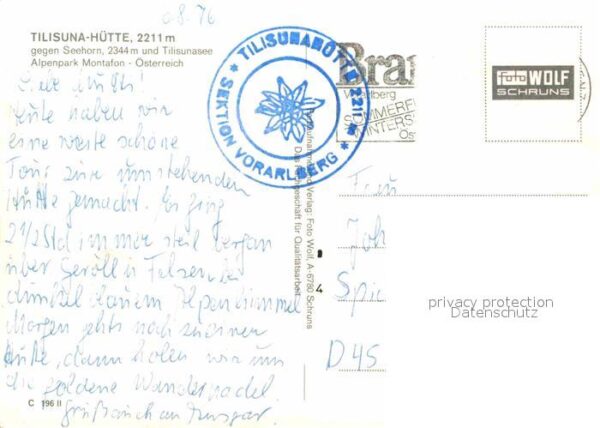 8.76
TILISUNA-HÜTTE, 2211 m
gegen Seehorn, 2344 m und Tilisunasee
Alpenpark Montafon - Österreich
Heute haben wir
eine weite schöne
Tour zur umstehenden
Hütte gemacht. Es ging
2 1/2 Std immer steil bergan
über Geröll u. Felsen bei
dunkelblauem Alpenhimmel
Morgen gehts noch zu einer
Hütte, dann holen wir uns
die goldene Wandernadel.
C 196 II
TILISUNAHÜTTE 2211 m
SEKTION VORARLBERG
Bra
Vorarlberg
SOMMERF
WINTERS
Öst
foto WOLF
SCHRUNS
Verlag: Foto Wolf, A-6780 Schruns
Das Fachgeschäft für Qualitätsarbeit
4
Frau
Joh
Spi
D 45
privacy protection
Datenschutz